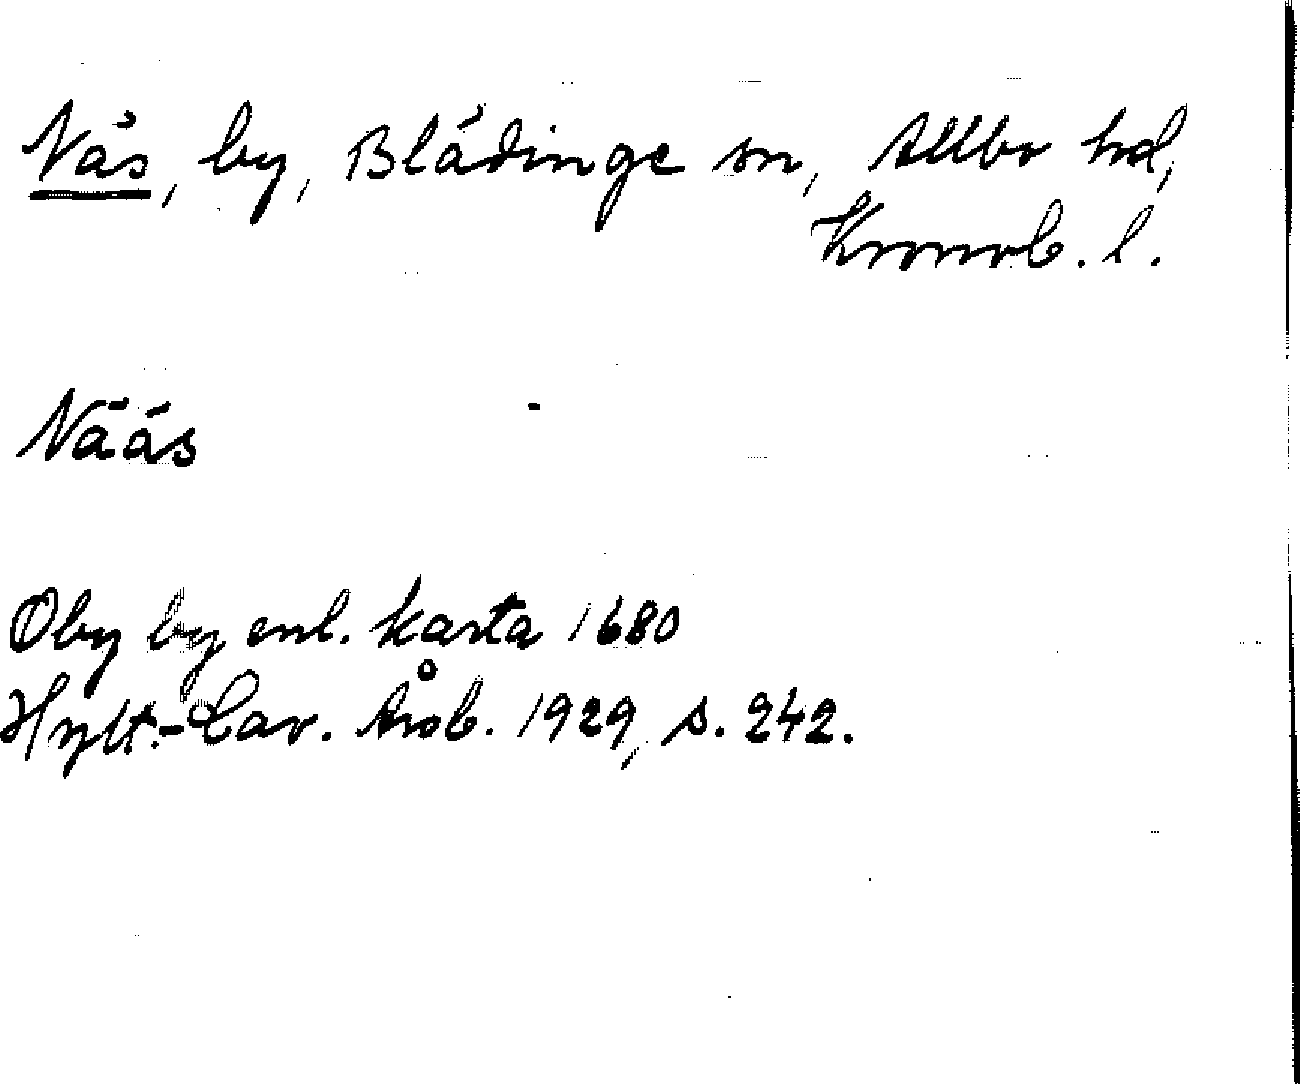 Näs, by, Blädinge sn, Allbo hd,
Kronob. l.
Nääs
Oby by enl. karta 1680
Hylt.-Cav. Årsb. 1929, s. 242.